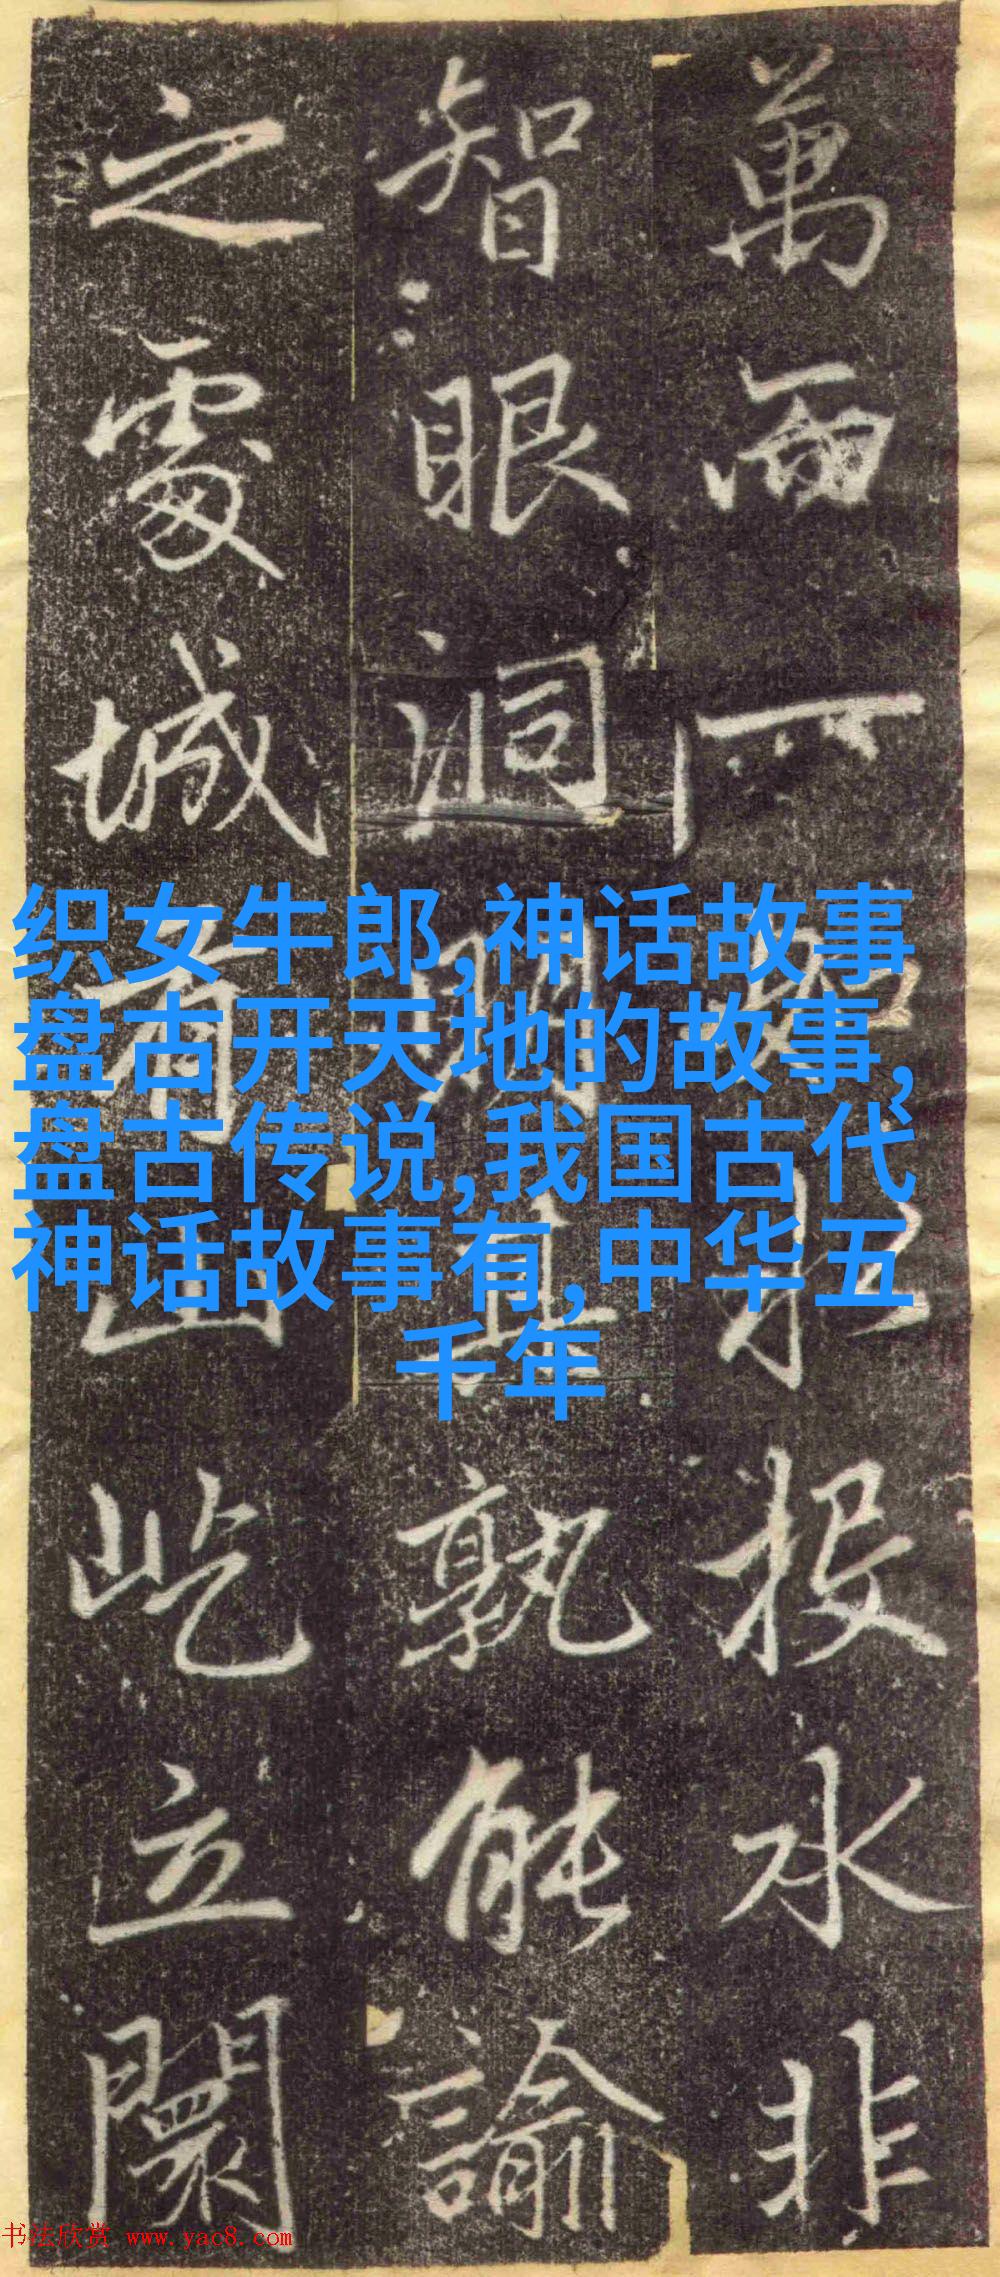 萬而投水非
智眼洞孰能諭
之處城山屹立闤
织女牛郎,神话故事
盘古开天地的故事,
盘古传说,我国古代
神话故事有,中华五
千年
书法欣赏 www.yac8.com